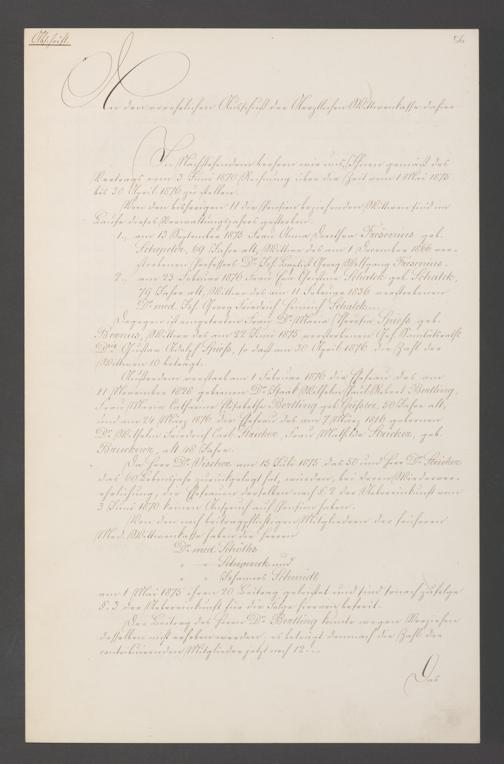 Abschrift.
56
An den verehrlichen Ausschuß der Aerztlichen Wittwenkasse dahier
In Nachstehendem beehren wir uns, Ihnen gemäß des
Vertrags vom 3 Juni 1870 Rechnung über die Zeit vom 1 Mai 1875
bis 30 April 1876 zu stellen.
Von den bisherigen 11 die Pension beziehenden Wittwen sind im
Laufe dieses Verwaltungsjahres gestorben
1., am 13 September 1875 Frau Anna Dorothea Fresenius geb.
69 Jahre alt, Wittwe des am 1 December 1866 ver-
storbenen Professors Dr. Joh. Georg Wolfgang Fresenius.
2., am 23 Februar 1876 Frau Schalck, geb. Schalck,
79 Jahre alt, Wittwe des am 11 Februar 1836 verstorbenen
Dr. med. Joh. Georg Friedrich Heinrich Schalck.
Dagegen ist eingetreten Frau Dr. Maria Theresia Spiess, geb.
Wittwe des am 22 Juni 1875 verstorbenen Geh. Sanitätsrath
Dr. Gustav Adolph Spiess, so daß am 30 April 1876 die Zahl der
Wittwen 10 beträgt.
Außerdem verstarb am 1 Februar 1876 die Ehefrau des am
11 November 1826 geborenen Dr. Wilhelm Robert Bertling,
Frau Maria Catharina Elisabetha Bertling geb. 50 Jahre alt,
und am 24 März 1876 die Ehefrau des am 7 März 1816 geborenen
Dr. Wilhelm Friedrich Carl Stricker, Frau Mathilde Stricker, geb.
Bruckner, alt 48 Jahre.
Da Herr Dr. am 15 Juli 1875 das 50 und Herr Dr. Stricker
das 60 Lebensjahr zurückgelegt hat, würden, bei deren Wiederver-
ehelichung, die Ehefrauen derselben nach §. 2 der Uebereinkunft vom
3 Juni 1870 keinen Anspruch auf Pension haben.
Von den noch beitragspflichtigen Mitgliedern der früheren
Med. Wittwenkasse haben die Herren
Dr. med. Schölles
" " und
" " Johannes Schmidt
am 1 Mai 1875 ihren 20 Beitrag geleistet und sind sonach zufolge
§. 3 der Uebereinkunft für die Folge hiervon befreit.
Der Beitrag des Herrn Dr. Bertling konnte wegen Verziehen
desselben nicht erhoben werden, es beträgt demnach die Zahl der
contribuirenden Mitglieder jetzt noch 12.
Das